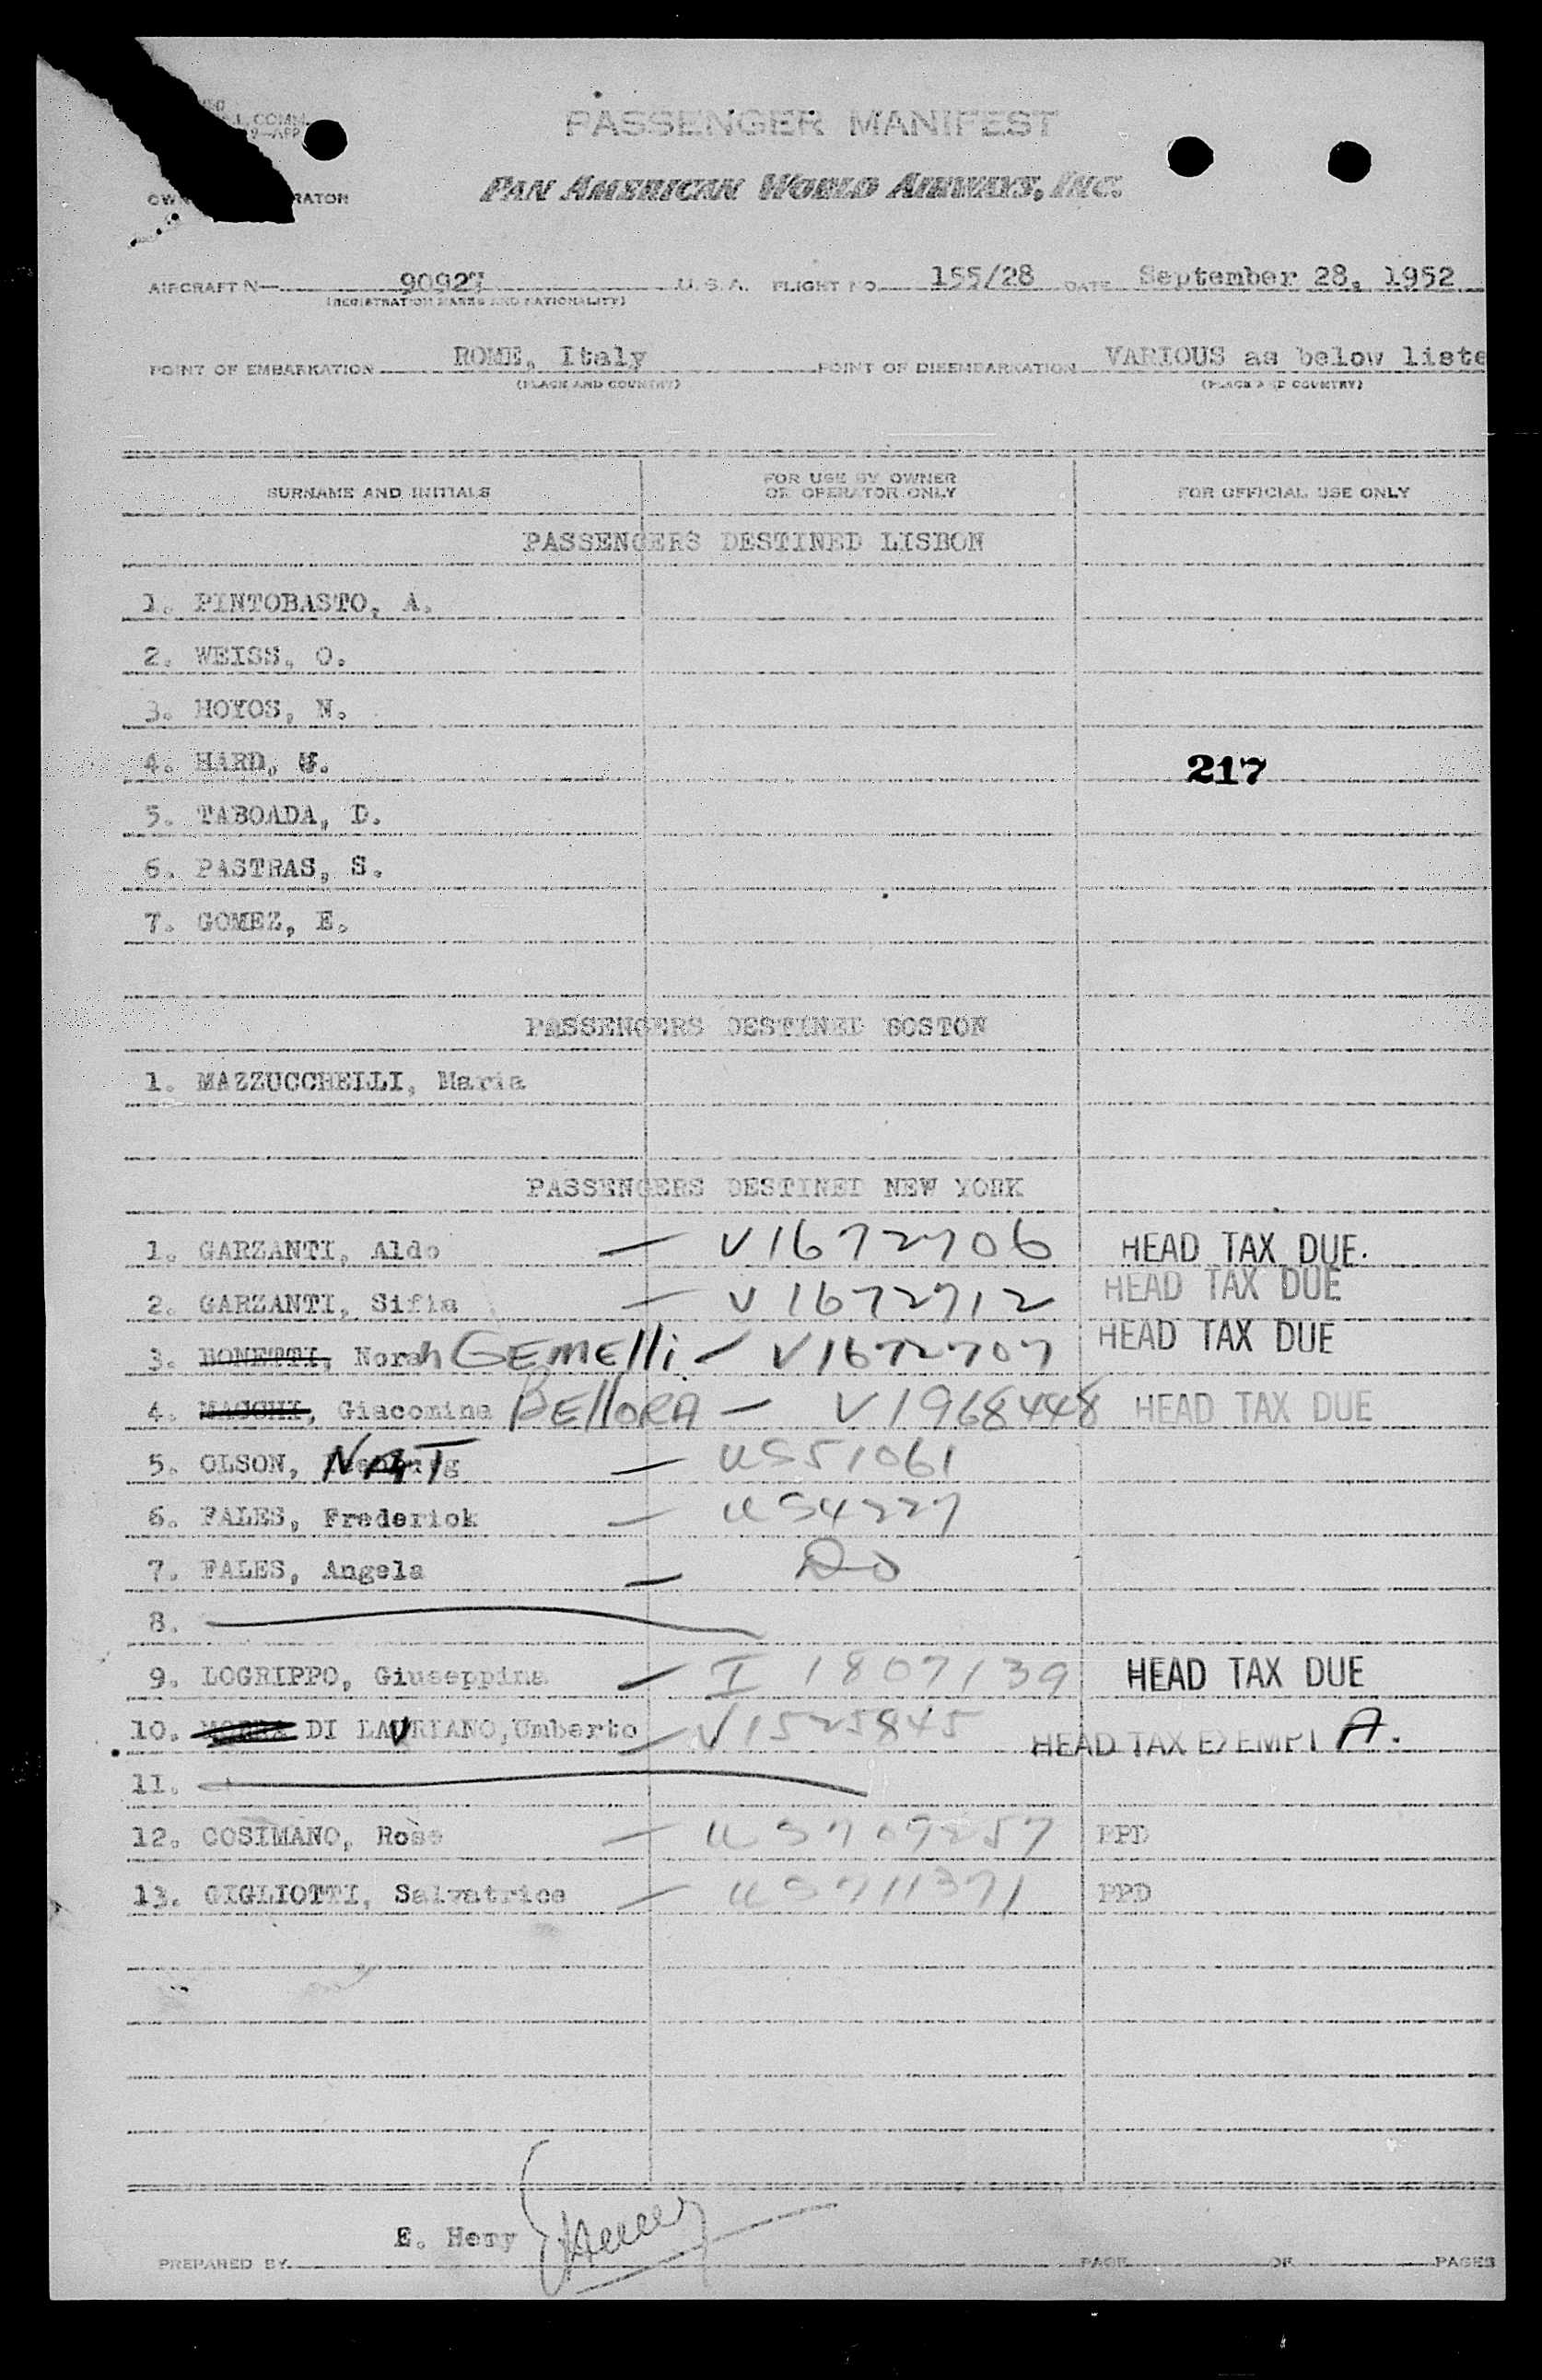 PASSENGER MANIFEST
PAN AMERICAN WORLD AIRWAYS, INC.
AIRCRAFT N— 9092 U. S. A. FLIGHT NO. 155/28 DATE September 28, 1952
(REGISTRATION MARKS AND NATIONALITY)
POINT OF EMBARKATION ROME, Italy POINT OF DISEMBARKATION VARIOUS as below liste
(PLACE AND COUNTRY) (PLACE AND COUNTRY)
SURNAME AND INITIALS FOR USE BY OWNER OR OPERATOR ONLY FOR OFFICIAL USE ONLY
PASSENGERS DESTINED LISBON
1. PINTOBASTO, A.
2. WEISS, O.
3. HOYOS, N.
4. HARD, 217
5. TABOADA, D.
6. PASTRAS, S.
7. GOMEZ, E.
PASSENGERS DESTINED BOSTON
1. MAZZUCCHELLI, Maria
PASSENGERS DESTINED NEW YORK
1. GARZANTI, Aldo — V1672706 HEAD TAX DUE.
2. GARZANTI, — V1672712 HEAD TAX DUE
3. BONETTI, Norah GEMElli — V1672707 HEAD TAX DUE
4. MACCHI, Giacomina BEllORA — V1968448 HEAD TAX DUE
5. OLSON, NAT — US51061
6. FALES, Frederick — US4227
7. FALES, Angela — DO
8.
9. LOGRIPPO, Giuseppina — I 1807139 HEAD TAX DUE
10. DI LAURIANO, Umberto — V1525845 HEAD TAX EXEMPT A.
11.
12. COSIMANO, Rose — US709257 PPD
13. GIGLIOTTI, Salvatrice — US711371 PPD
E. Hemy
PREPARED BY PAGE OF PAGES